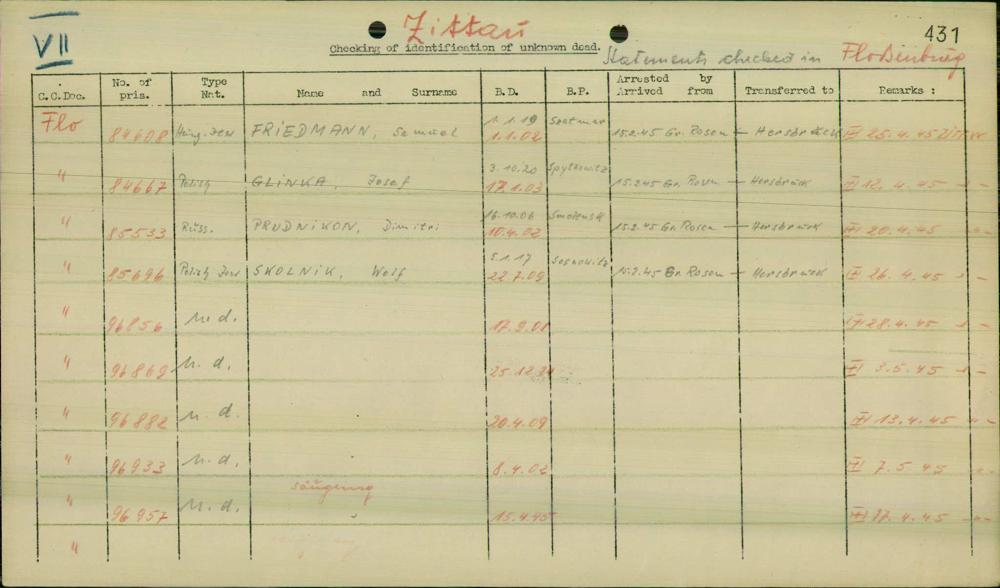 VII
Zittau
431
Checking of identification of unknown dead.
Statements checked in Flossenbürg
C.C.Doc. No. of pris. Type Nat. Name and Surname B.D. B.P. Arrested by Arrived from Transferred to Remarks :
Flo 84608 Hung. Jew FRIEDMANN, Samuel 1.1.19 1.1.02 Szatmar 15.2.45 Gr. Rosen — Hersbruck 25.4.45
" 84667 Polish GLINKA, Josef 3.10.20 17.1.03 Spytkowitz 15.2.45 Gr. Rosen — Hersbruck 12.4.45 " "
" 85533 Russ. PRUDNIKON, Dimitri 16.10.06 10.4.02 Smolensk 15.2.45 Gr. Rosen — Hersbruck 20.4.45 " "
" 85696 Polish Jew SKOLNIK, Wolf 5.1.17 22.7.09 Sosnowitz 15.2.45 Gr. Rosen — Hersbruck 26.4.45 " "
" 96856 n. d. 17.9.01 28.4.45 " "
" 96869 n. d. 25.12. 3.5.45 " "
" 96882 n. d. 20.4.09 13.4.45 " "
" 96933 n. d. 8.4.02 7.5.45 " "
säugling
" 96957 n. d. 15.4.45 17.4.45 " "
"